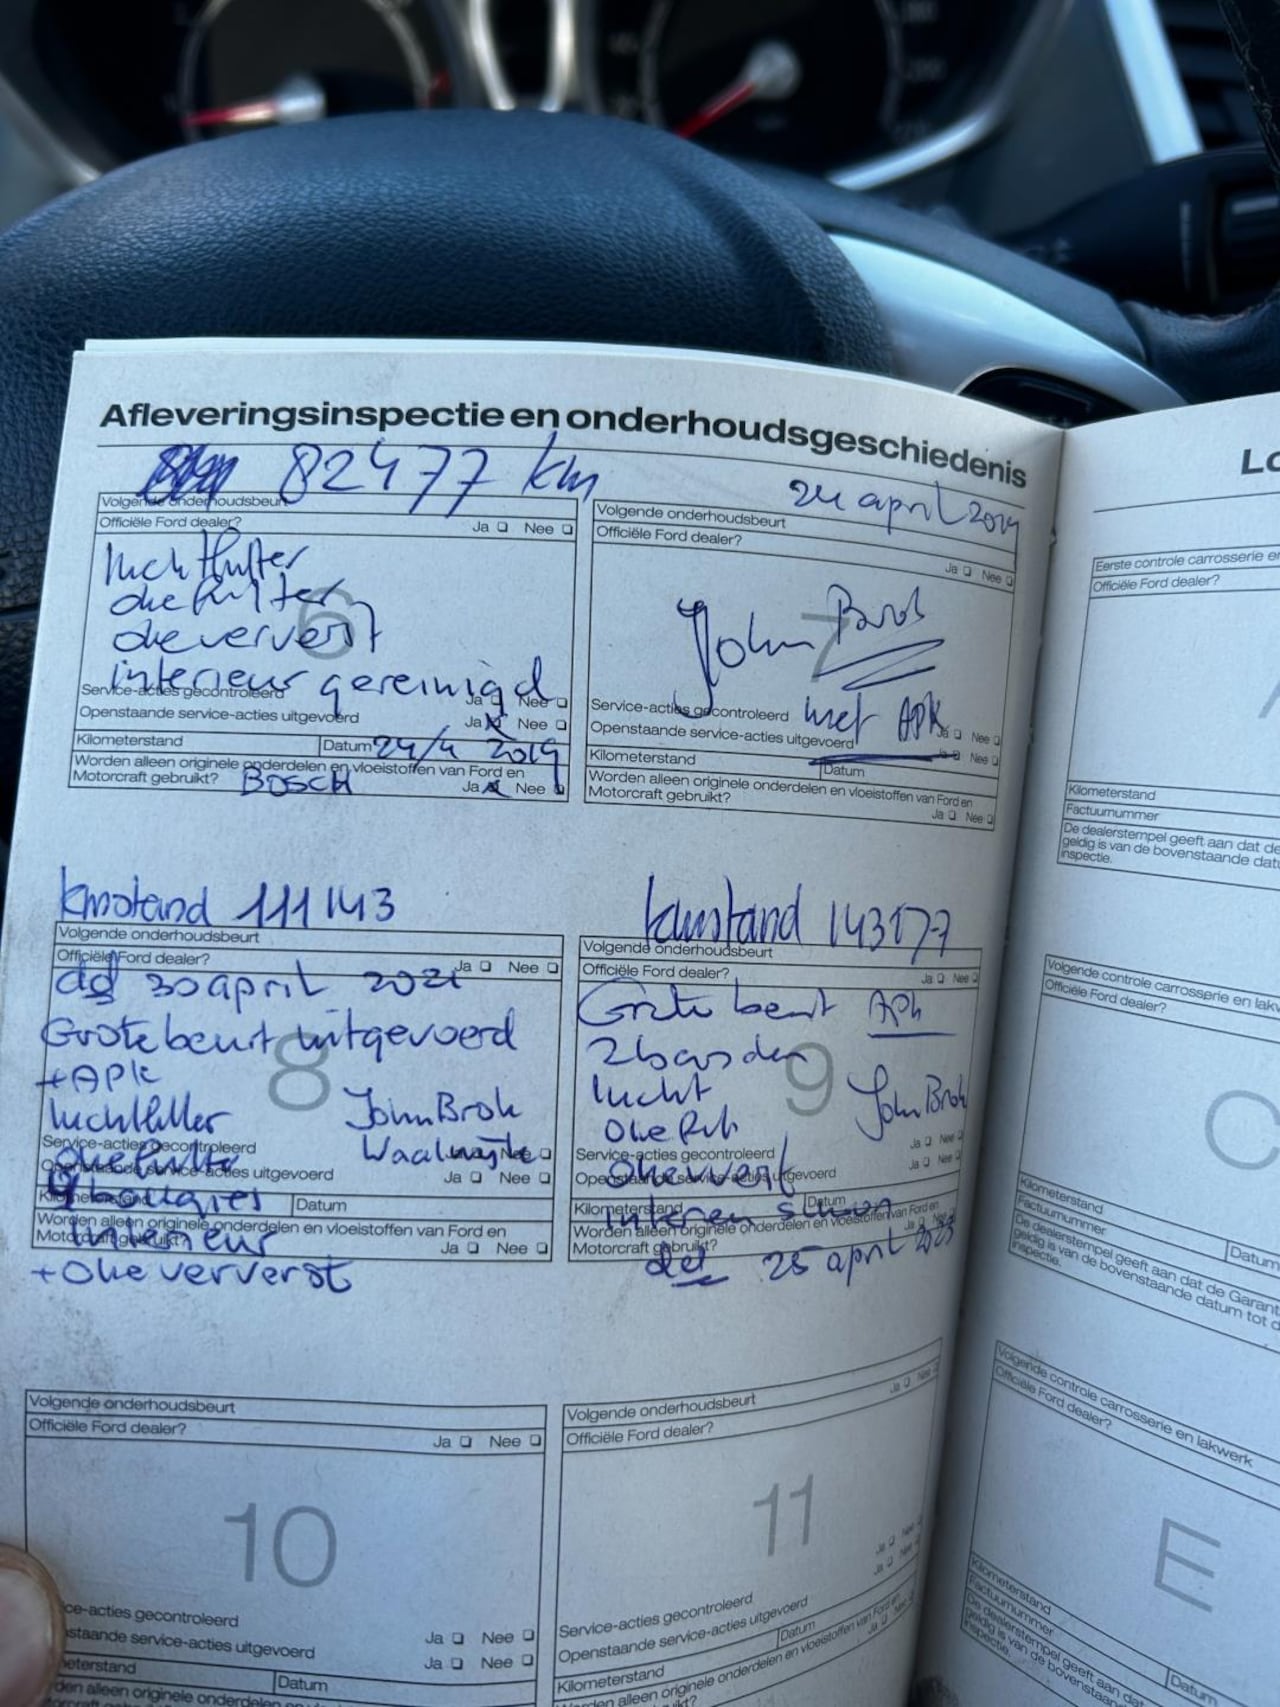 Afleveringsinspectie en onderhoudsgeschiedenis
82477 km
24 april 2019
Volgende onderhoudsbeurt
Officiële Ford dealer?
Ja Nee
luchtfilter
oliefilter
olie ververst
interieur gereinigd
6
Service-acties gecontroleerd
Ja Nee
Openstaande service-acties uitgevoerd
Ja Nee
Kilometerstand Datum 24/4 2019
Worden alleen originele onderdelen en vloeistoffen van Ford en
Motorcraft gebruikt? BOSCH Ja Nee
Volgende onderhoudsbeurt
Officiële Ford dealer?
Ja Nee
7
John Brok
Service-acties gecontroleerd met APK
Ja Nee
Openstaande service-acties uitgevoerd
Ja Nee
Kilometerstand Datum
Worden alleen originele onderdelen en vloeistoffen van Ford en
Motorcraft gebruikt?
Ja Nee
kmstand 111143
Volgende onderhoudsbeurt
Officiële Ford dealer?
Ja Nee
dd 30 april 2021
Grote beurt uitgevoerd
+ APK
8
luchtfilter John Brok
Waalwijk
Service-acties gecontroleerd
Nee
oliefilter
Openstaande service-acties uitgevoerd
Ja Nee
Kilometerstand Datum
Worden alleen originele onderdelen en vloeistoffen van Ford en
Motorcraft gebruikt?
Ja Nee
interieur
+ olie ververst
kmstand 143177
Volgende onderhoudsbeurt
Officiële Ford dealer?
Ja Nee
Grote beurt APK
2 banden
9
lucht John Brok
Ja Nee
Service-acties gecontroleerd
Ja Nee
Openstaande service-acties uitgevoerd
Kilometerstand Datum
interieur schoon
Worden alleen originele onderdelen en vloeistoffen van Ford en
Motorcraft gebruikt?
Ja Nee
25 april 2023
Volgende onderhoudsbeurt
Officiële Ford dealer?
Ja Nee
10
ce-acties gecontroleerd
Ja Nee
staande service-acties uitgevoerd
Ja Nee
eterstand Datum
den alleen originele onderdelen
Volgende onderhoudsbeurt
Officiële Ford dealer?
Ja Nee
11
Ja Nee
Ja Nee
Service-acties gecontroleerd
Openstaande service-acties uitgevoerd
Kilometerstand Datum
alleen originele onderdelen en vloeistoffen van Ford en
Ja Nee
Lo
Eerste controle carrosserie en
Officiële Ford dealer?
Kilometerstand
Factuurnummer
De dealerstempel geeft aan dat de
geldig is van de bovenstaande dat
inspectie.
Volgende controle carrosserie en lak
Officiële Ford dealer?
C
Kilometerstand
Factuurnummer
Datum
De dealerstempel geeft aan dat de Garant
geldig is van de bovenstaande datum tot d
inspectie.
Volgende controle carrosserie en lakwerk
Officiële Ford dealer?
E
Kilometerstand
Factuurnummer
Datum
De dealerstempel geeft aan dat
geldig is van de bovenstaande
inspectie.